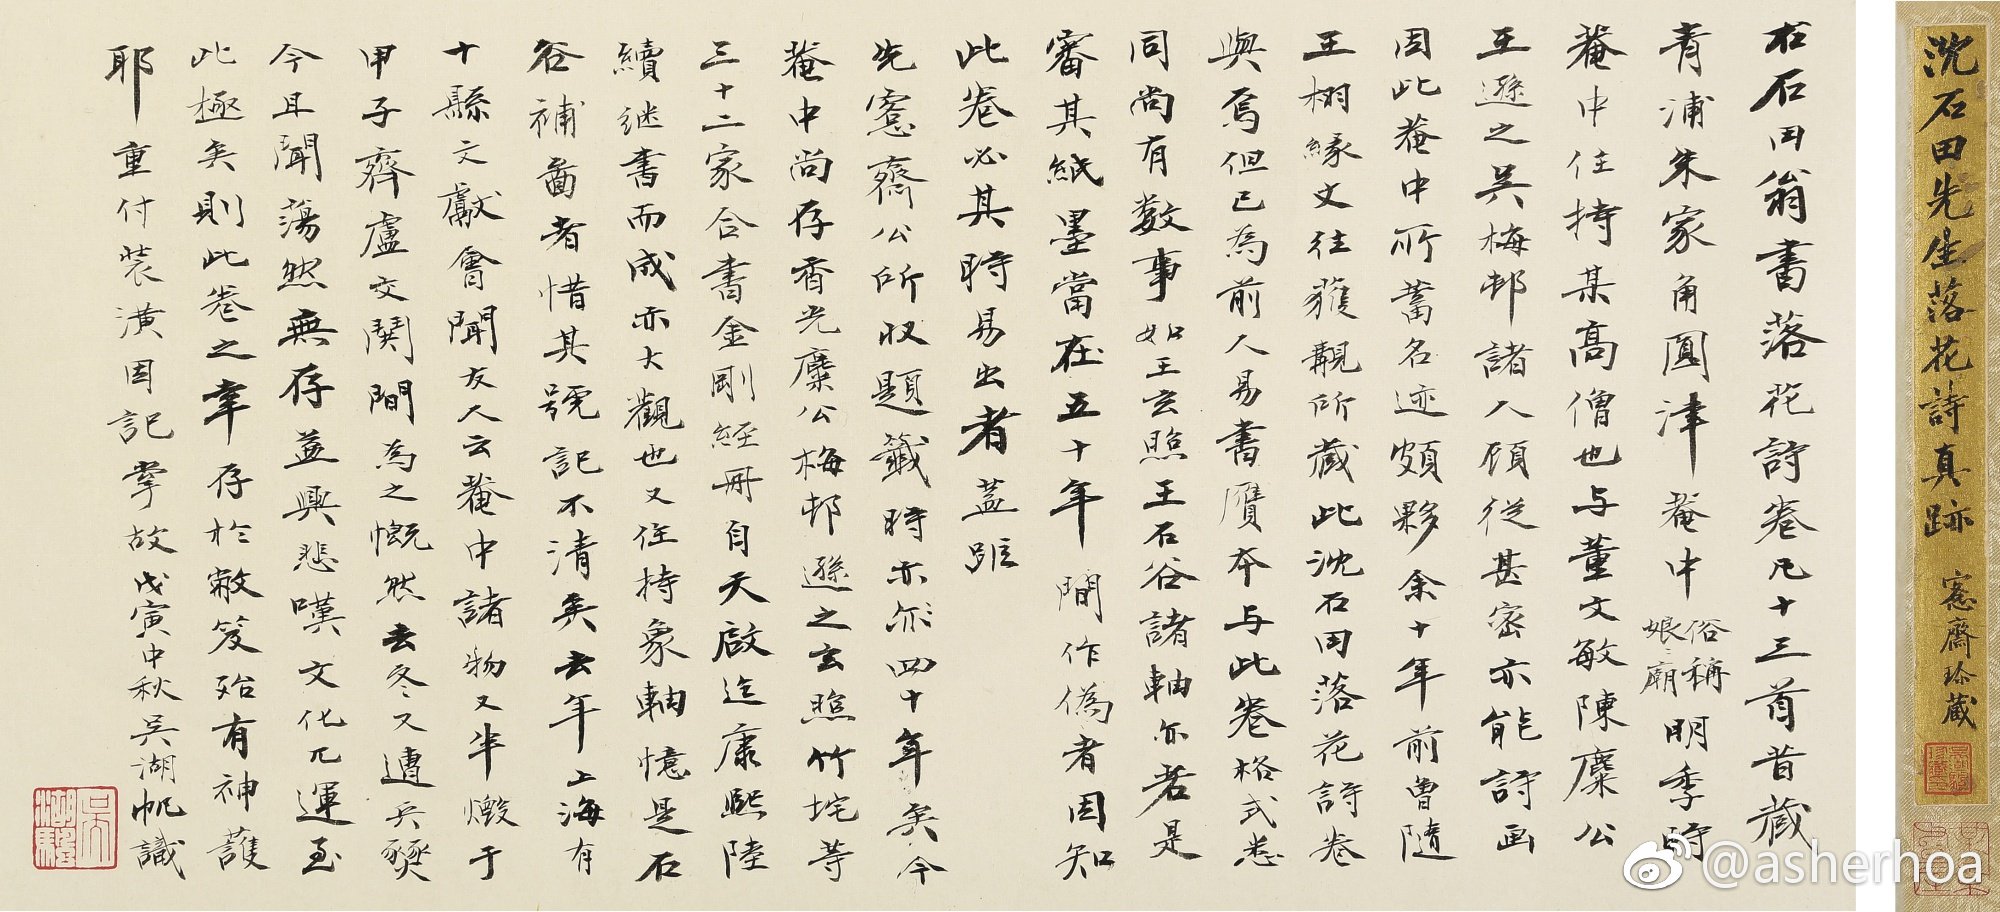 沈石田先生落花詩真跡
愙齋珍藏
右石田翁書落花詩卷凡十三首昔藏
青浦朱家角圓津菴中俗稱娘娘廟明季時
菴中住持某高僧也与董文敏陳麋公
王遜之吳梅邨諸人頋從甚密亦能詩画
因此菴中所蓄名迹頗夥余十年前曾随
王栩緣丈往獲觀所藏此沈石田落花詩卷
與焉但已為前人易書贋夲与此卷格式悉
同尚有数事如王玄照王石谷諸軸亦若是
審其紙墨當在五十年間作偽者因知
此卷必其時易出者蓋距
先愙齋公所収題籤時亦尔四十年矣今
菴中尚存香光麋公梅邨遜之玄照竹垞等
三十二家合書金剛經冊自天啟迄康熙陸
續继書而成亦大觀也又住持象軸憶是石
谷補啚者惜其號記不清矣去年上海有
十縣文獻會聞友人云菴中諸物又半燬于
甲子齊盧交鬨間為之慨然去冬又遭兵燹
今且聞蕩然無存益興悲嘆文化兀運至
此極矣則此卷之幸存於敝笈殆有神護
耶重付装潢因記掌故戊寅中秋吳湖帆識
@asherhoa